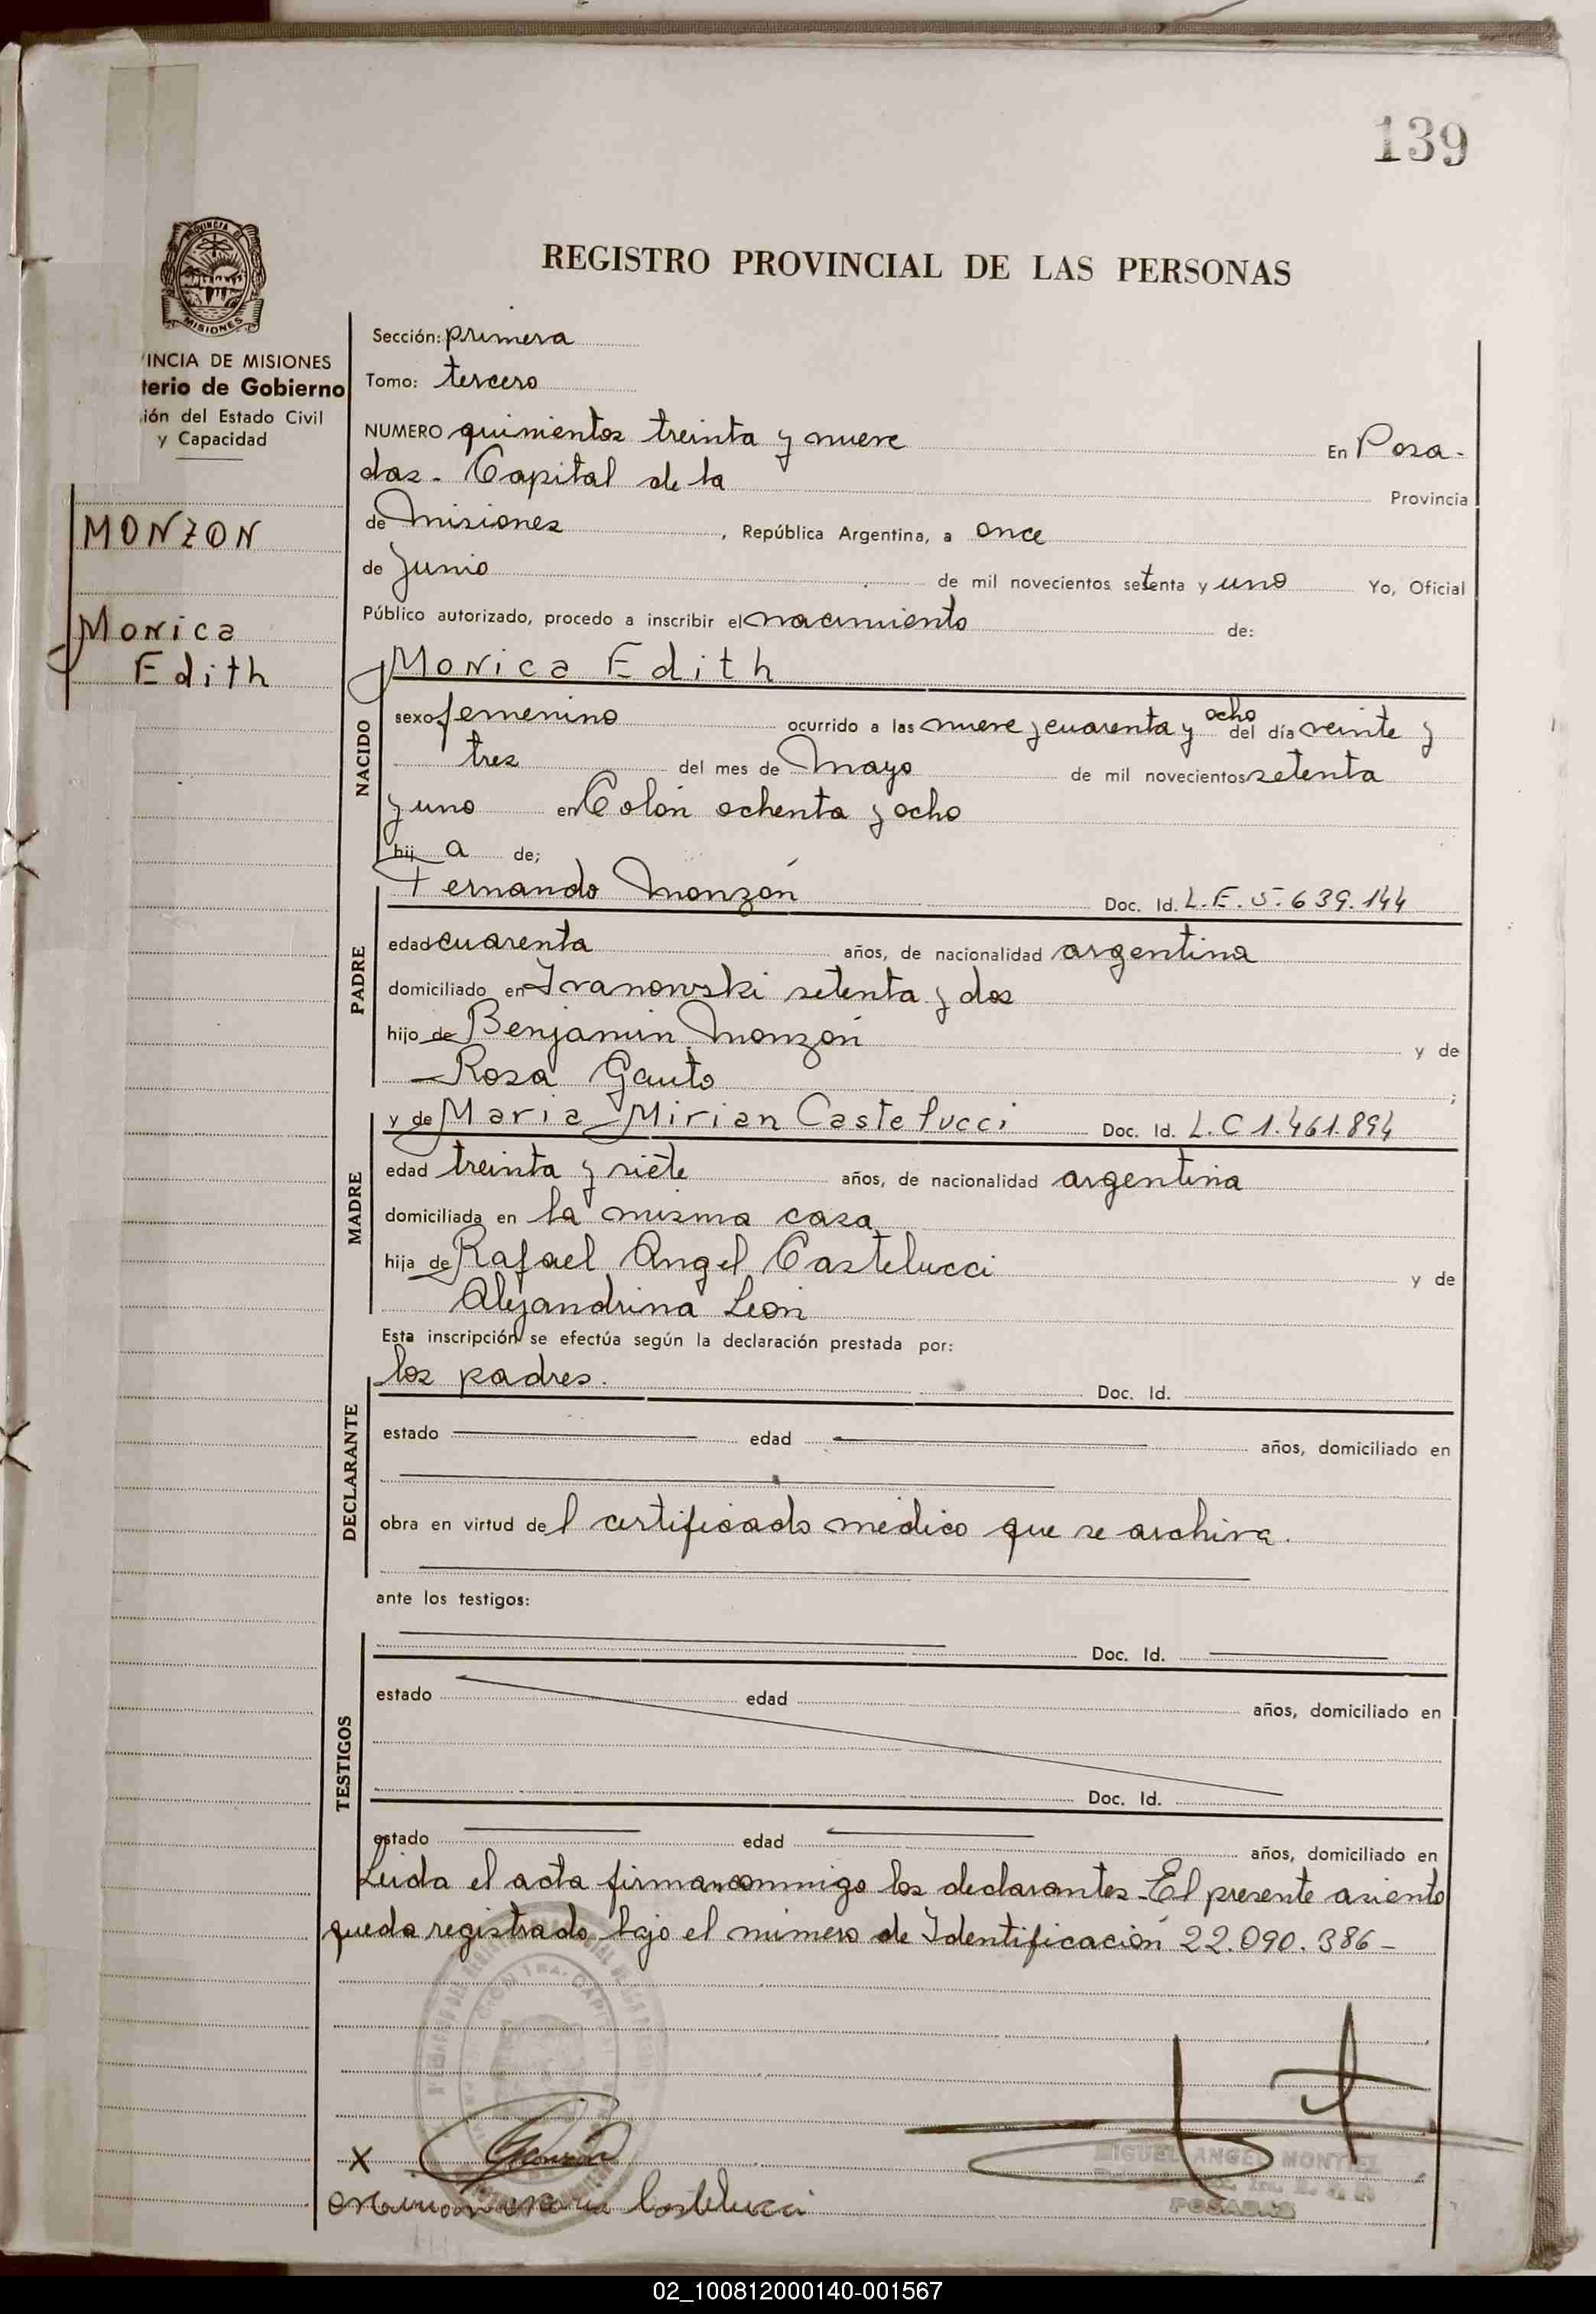 139
PROVINCIA DE
MISIONES
REGISTRO PROVINCIAL DE LAS PERSONAS
VINCIA DE MISIONES
terio de Gobierno
ión del Estado Civil
y Capacidad
MONZON
Monica
Edith
Sección: primera
Tomo: tercero
NUMERO quinientos treinta y nueve En Posa-
das - Capital de la Provincia
de Misiones, República Argentina, a once
de Junio de mil novecientos setenta y uno Yo, Oficial
Público autorizado, procedo a inscribir el nacimiento de:
Monica Edith
NACIDO
sexo femenino ocurrido a las nueve y cuarenta y ocho del día veinte y
tres del mes de Mayo de mil novecientos setenta
y uno en Colón ochenta y ocho
hij a de;
PADRE
Fernando Monzón Doc. Id. L.E. 5.639.144
edad cuarenta años, de nacionalidad argentina
domiciliado en Ivanowski setenta y dos
hijo de Benjamin Monzón y de
Rosa Gauto ;
MADRE
y de Maria Mirian Castelucci Doc. Id. L.C 1.461.894
edad treinta y siete años, de nacionalidad argentina
domiciliada en la misma casa
hija de Rafael Angel Castelucci y de
Alejandrina Leon
Esta inscripción se efectúa según la declaración prestada por:
DECLARANTE
los padres. Doc. Id.
estado edad años, domiciliado en
obra en virtud del certificado médico que se archiva.
ante los testigos:
TESTIGOS
Doc. Id.
estado edad años, domiciliado en
Doc. Id.
estado edad años, domiciliado en
Leida el acta firman conmigo los declarantes - El presente asiento
queda registrado bajo el número de Identificación 22.090.386 -
X
MIGUEL ANGEL MONTIEL
POSADAS
Castelucci
02_100812000140-001567